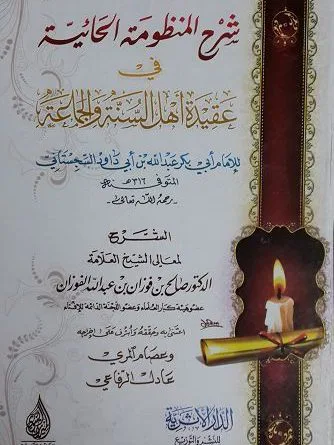 شرح المنظومة الحائية
في
عقيدة أهل السنة والجماعة
للإمام أبي بكر عبد الله بن أبي داود السجستاني
المتوفى ٣١٦ هـ
رحمه الله تعالى
الشرح
لمعالي الشيخ العلامة
الدكتور صالح بن فوزان بن عبد الله الفوزان
عضو هيئة كبار العلماء وعضو اللجنة الدائمة للإفتاء
اعتنى به وحققه وأشرف على إخراجه
وعصام المري
عادل الرفاعي
الدار الأثرية
للنشر والتوزيع